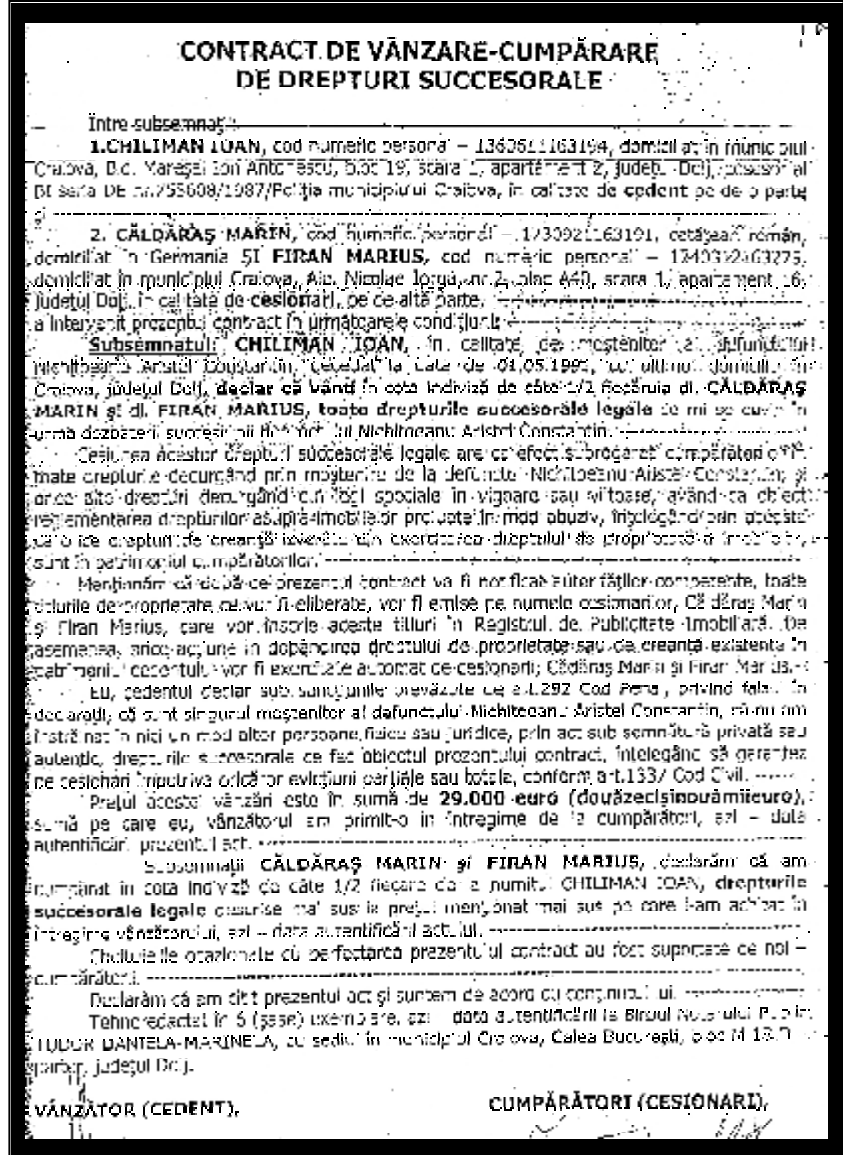 CONTRACT DE VÂNZARE-CUMPĂRARE
DE DREPTURI SUCCESORALE
Între subsemnaţii:
1.CHILIMAN IOAN, cod numeric personal – domiciliat în municipiul
Craiova, B.d. Mareşal Ion Antonescu, bloc 19, scara 1, apartament 2, judeţul Dolj, posesor al
BI seria DE nr.755608/1987/Poliţia municipiului Craiova, în calitate de cedent pe de o parte
şi
2. CĂLDĂRAŞ MARIN, cod numeric personal – 1730921163191, cetăţean român,
domiciliat în Germania ŞI FIRAN MARIUS, cod numeric personal –
domiciliat în municipiul Craiova, Ale. Nicolae Iorga, nr.2, bloc A40, scara 1, apartament 16,
judeţul Dolj, în calitate de cesionari, pe de altă parte,
a intervenit prezentul contract în următoarele condiţiuni:
Subsemnatul: CHILIMAN IOAN, în calitate de moştenitor al defunctului
Nichitoeanu Aristel Constantin, decedat la data de 01.05.1991, cu ultimul domiciliu în
Craiova, judeţul Dolj, declar că vând în cotă indiviză de câte 1/2 fiecăruia dl. CĂLDĂRAŞ
MARIN şi dl. FIRAN MARIUS, toate drepturile succesorale legale ce mi se cuvin în
urma dezbaterii succesiunii defunctului Nichitoeanu Aristel Constantin.
Cesiunea acestor drepturi succesorale legale are ca efect subrogarea cumpărătorilor în
toate drepturile decurgând prin moştenire de la defunctul Nichitoeanu Aristel Constantin, şi
orice alte drepturi decurgând din legi speciale în vigoare sau viitoare, având ca obiect
reglementarea drepturilor asupra imobilelor preluate în mod abuziv, înţelegând prin aceasta
că orice drepturi de creanţă din exercitarea dreptului de proprietate a imobilelor,
sunt în patrimoniul cumpărătorilor.
Menţionăm că după ce prezentul contract va fi notificat autorităţilor competente, toate
titlurile de proprietate ce vor fi eliberate, vor fi emise pe numele cesionarilor, Căldăraş Marin
şi Firan Marius, care vor înscrie aceste titluri în Registrul de Publicitate Imobiliară. De
asemenea, orice acţiune în dobândirea dreptului de proprietate sau de creanţă existenta în
patrimoniul cedentului vor fi exercitate automat de cesionarii, Căldăraş Marin şi Firan Marius.
Eu, cedentul declar sub sancţiunile prevăzute de art.292 Cod Penal, privind falsul în
declaraţii, că sunt singurul moştenitor al defunctului Nichitoeanu Aristel Constantin, că nu am
înstrăinat în nici un mod altor persoane fizice sau juridice, prin act sub semnătură privată sau
autentic, drepturile succesorale ce fac obiectul prezentului contract, înţelegând să garantez
pe cesionari împotriva oricăror evicţiuni parţiale sau totale, conform art.1337 Cod Civil.
Preţul acestei vânzări este în sumă de 29.000 euro (douăzecişinouămiieuro),
sumă pe care eu, vânzătorul am primit-o în întregime de la cumpărători, azi – data
autentificării prezentului act.
Subsemnaţii CĂLDĂRAŞ MARIN şi FIRAN MARIUS, declarăm că am
cumpărat în cotă indiviză de câte 1/2 fiecare de la numitul CHILIMAN IOAN, drepturile
succesorale legale descrise mai sus la preţul menţionat mai sus pe care l-am achitat în
întregime vânzătorului, azi – data autentificării actului.
Cheltuielile ocazionate cu perfectarea prezentului contract au fost suportate de noi –
cumpărătorii.
Declarăm că am citit prezentul act şi suntem de acord cu conţinutul lui.
Tehnoredactat în 6 (şase) exemplare, azi – data autentificării la Biroul Notarului Public
TUDOR DANIELA-MARINELA, cu sediul în municipiul Craiova, Calea Bucureşti, bloc M
parter, judeţul Dolj.
VÂNZĂTOR (CEDENT), CUMPĂRĂTORI (CESIONARI),